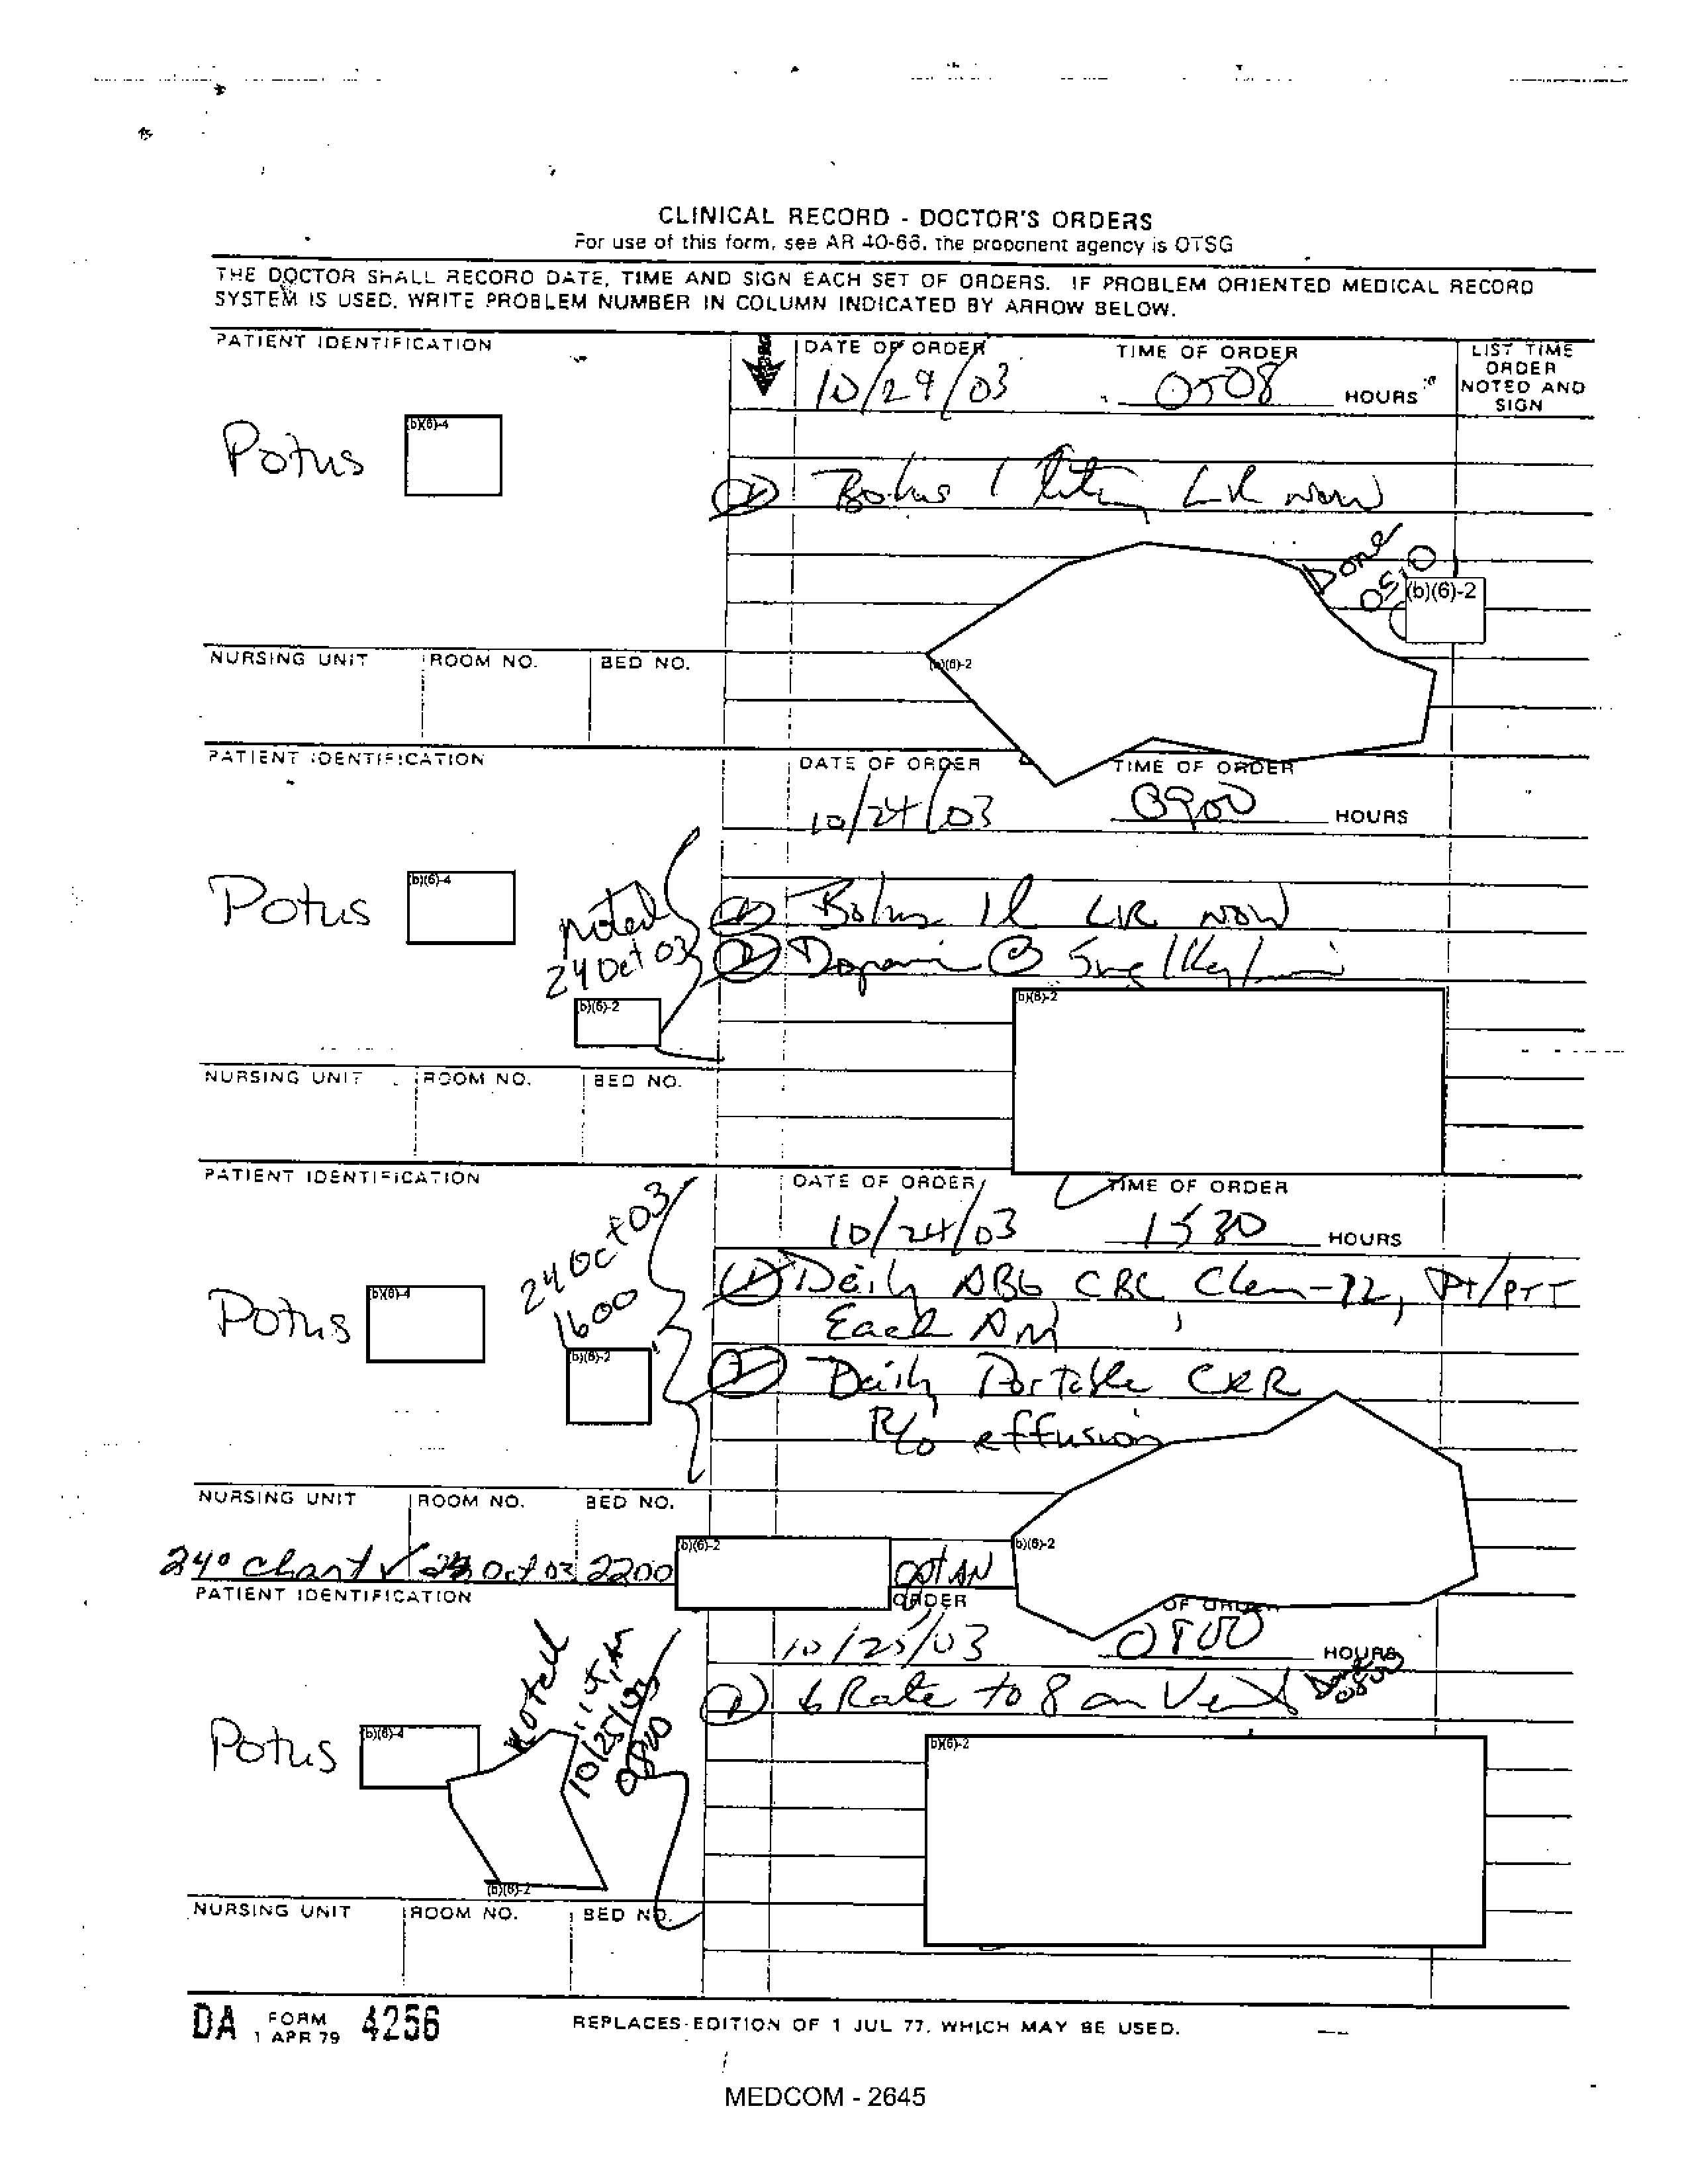 CLINICAL RECORD - DOCTOR'S ORDERS
For use of this form, see AR 40-66, the proponent agency is OTSG
THE DOCTOR SHALL RECORD DATE, TIME AND SIGN EACH SET OF ORDERS. IF PROBLEM ORIENTED MEDICAL RECORD
SYSTEM IS USED, WRITE PROBLEM NUMBER IN COLUMN INDICATED BY ARROW BELOW.
PATIENT IDENTIFICATION
DATE OF ORDER
TIME OF ORDER
LIST TIME ORDER NOTED AND SIGN
10/24/03 0508 HOURS
Potus (b)(6)-4
① Bolus 1 liter LR now
Done 0510
(b)(6)-2
(b)(6)-2
NURSING UNIT ROOM NO. BED NO.
PATIENT IDENTIFICATION
DATE OF ORDER TIME OF ORDER
10/24/03 0900 HOURS
Potus (b)(6)-4
noted
24 Oct 03
(b)(6)-2
① Bolus 1l LR now
② Dopamin @ 5mg/Kg/min
(b)(6)-2
NURSING UNIT ROOM NO. BED NO.
PATIENT IDENTIFICATION
DATE OF ORDER TIME OF ORDER
10/24/03 1530 HOURS
Potus (b)(6)-4
24 Oct 03
1600
(b)(6)-2
① Daily ABG CBC, Chem-12, Pt/PTT
Each AM
② Daily Portable CXR
R/o effusion
(b)(6)-2
NURSING UNIT ROOM NO. BED NO.
24° Chart ✓ Oct 03 2200 (b)(6)-2
PATIENT IDENTIFICATION
ORDER OF ORDER
10/25/03 0800 HOURS
Potus (b)(6)-4
Noted
10/25/03
0800
(b)(6)-2
① ↓ Rate to 8 on Vent
Done 0800
(b)(6)-2
NURSING UNIT ROOM NO. BED NO.
DA FORM 1 APR 79 4256
REPLACES EDITION OF 1 JUL 77, WHICH MAY BE USED.
MEDCOM - 2645